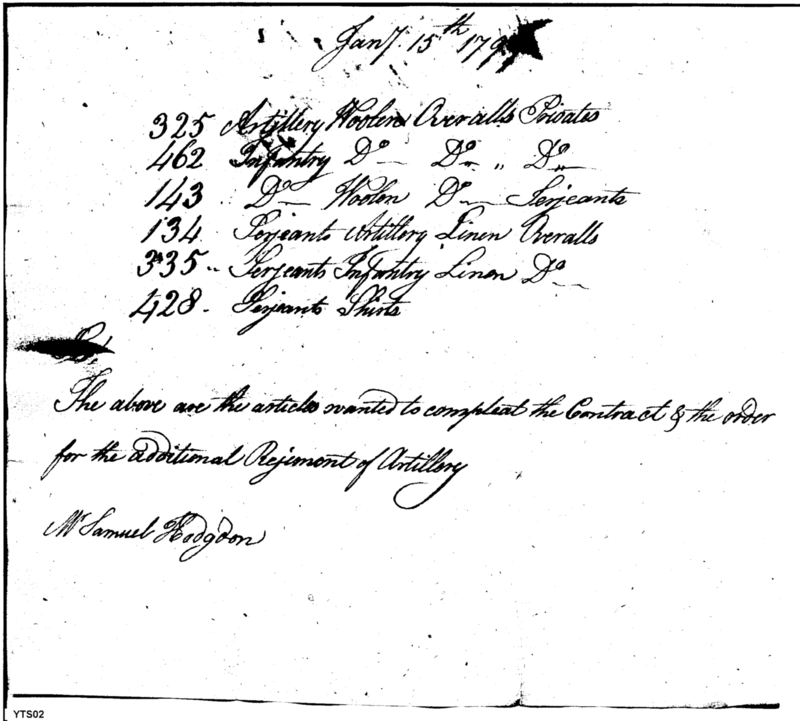 Jany. 15th 179
325 Artillery Woolen Overalls Privates
462 Infantry Do — Do „ Do
143 Do — Woolen Do — Serjeants
134 Serjeants Artillery Linen Overalls
335 .. Serjeants Infantry Linen Do —
428 . Serjeants Shirts
The above are the articles wanted to compleat the Contract & the order
for the additional Rejiment of Artillery
Mr Samuel Hodgdon
YTS02